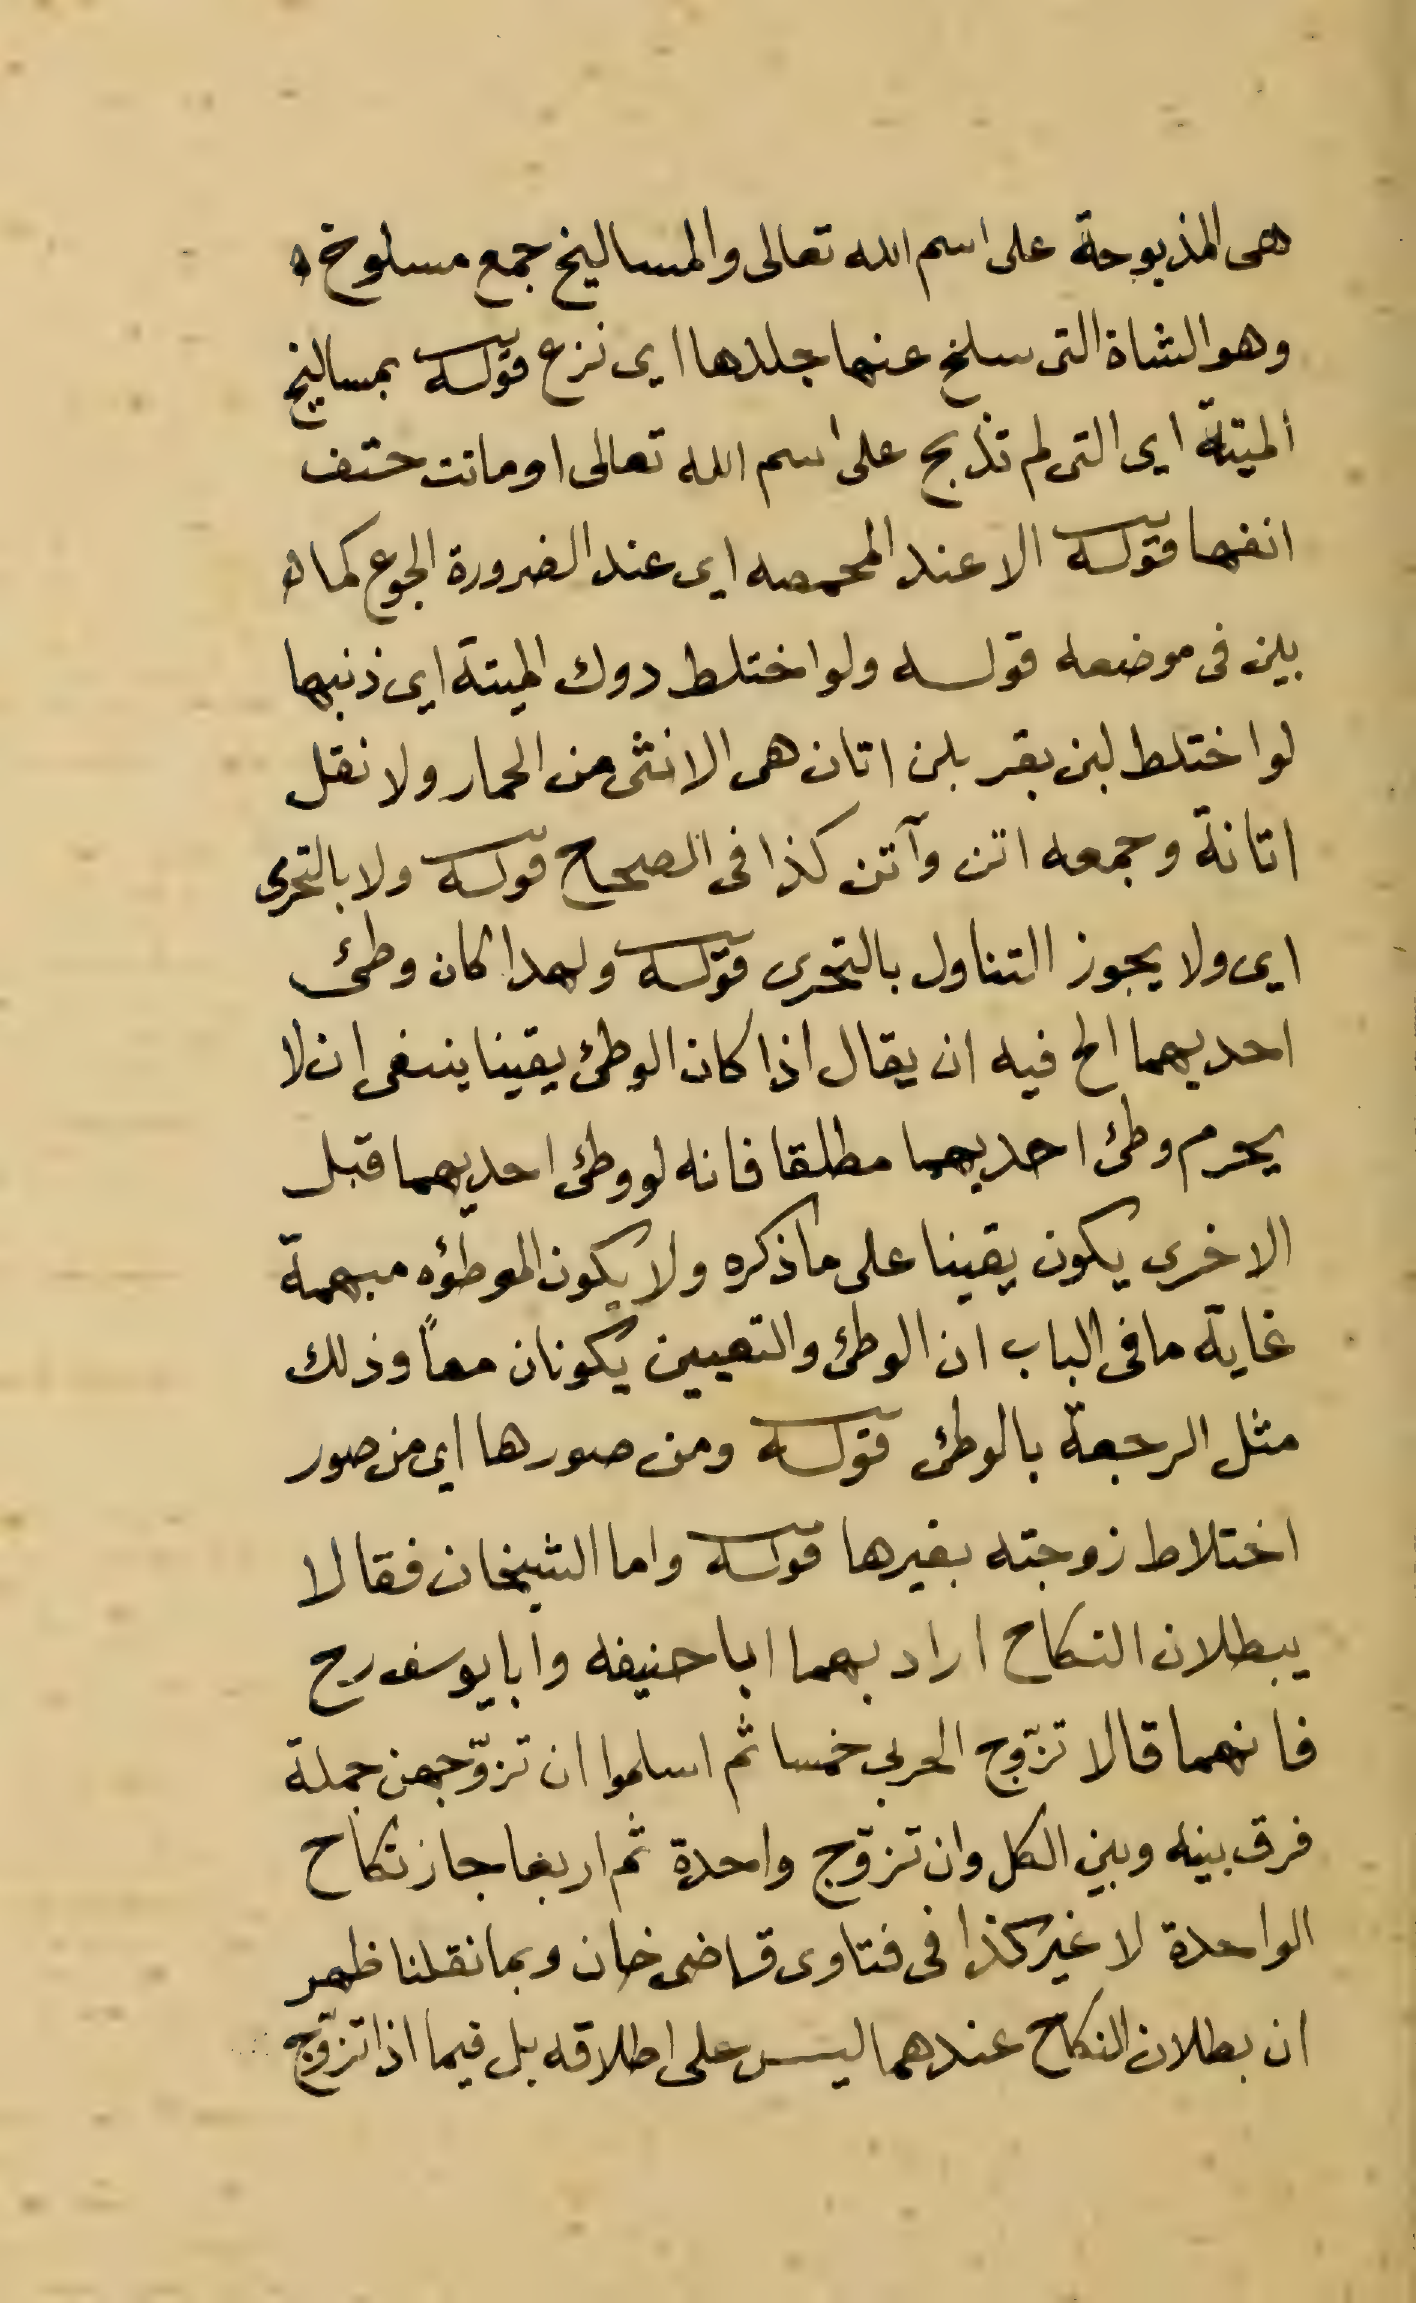 هى المذبوحة على اسم الله تعالى والمساليخ جمع مسلوخ ه
وهو الشاة التى سلخ عنها جلدها اى نزع قوله بمساليخ
الميتة اى التى لم تذبح على اسم الله تعالى او ماتت حتف
انفها قوله الا عند المخمصه اى عند الضرورة الجوع كما ه
بين فى موضعه قوله ولو اختلط دوك الميتة اى ذنبها
لو اختلط لبن بقر بلبن اتان هى الانثى من الحمار ولا نقل
اتانة وجمعه اتن وآتن كذا فى الصحاح قوله ولا بالتحرى
اى ولا يجوز التناول بالتحرى قوله ولهذا كان وطئ
احديهما الخ فيه ان يقال اذا كان الوطئ يقينا ينبغى ان لا
يحرم وطئ احديهما مطلقا فانه لو وطئ احديهما قبل
الاخرى يكون يقينا على ما ذكره ولا يكون الموطؤه مبهمة
غاية ما فى الباب ان الوطئ والتعيين يكونان معاً وذلك
مثل الرجعة بالوطئ قوله ومن صورها اى من صور
اختلاط زوجته بغيرها قوله واما الشيخان فقالا
يبطلان النكاح اراد بهما ابا حنيفه وابا يوسف رح
فانهما قالا تزوّج الحربى خمسا ثم اسلموا ان تزوّجهن جملة
فرق بينه وبين الكل وان تزوّج واحدة ثم اربعا جاز نكاح
الواحدة لا غير كذا فى فتاوى قاضى خان وبما نقلنا ظهر
ان بطلان النكاح عندهما ليس على اطلاقه بل فيما اذا تزوّج